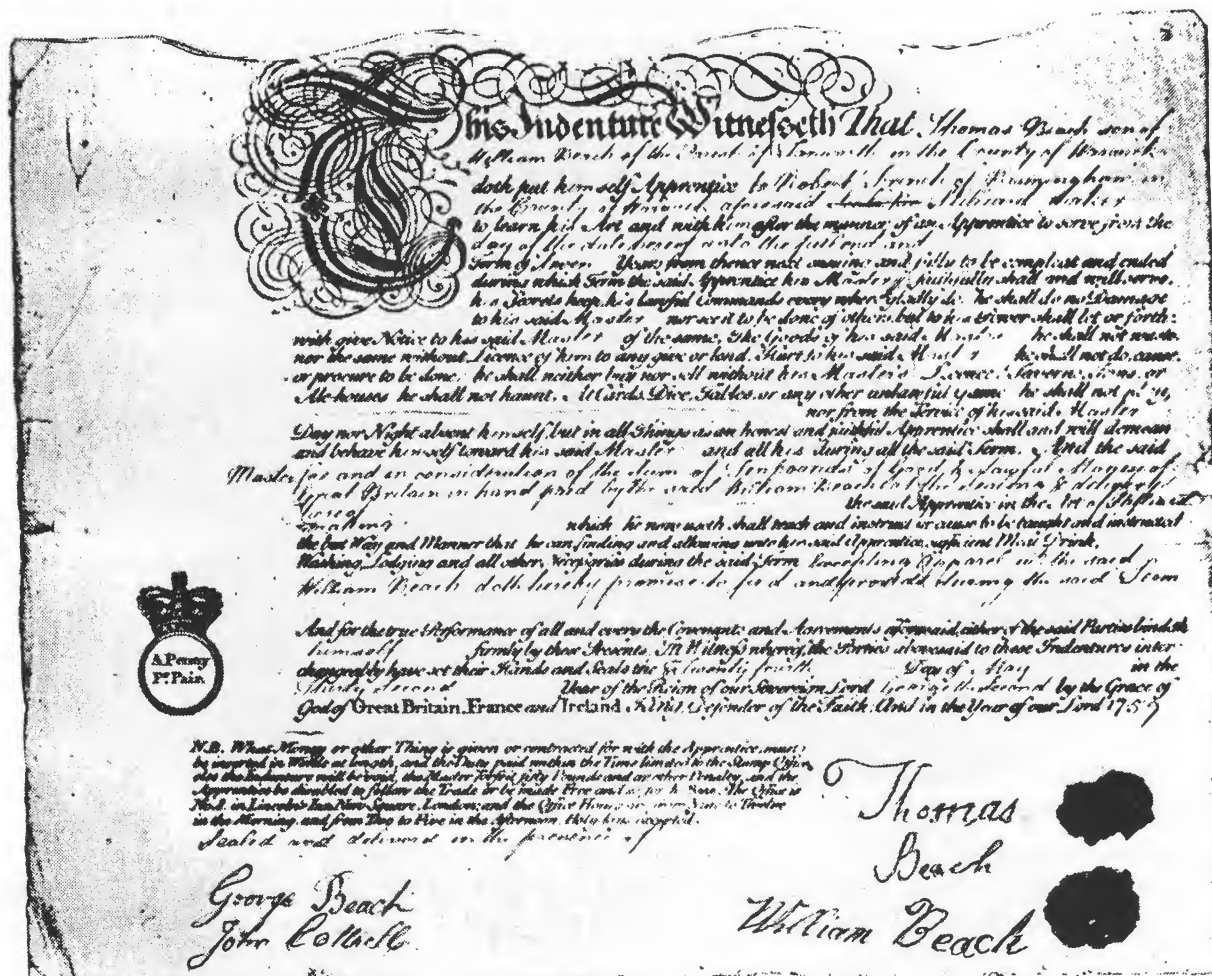 This Indenture Witnesseth That Thomas Beach son of
William Beach of the in the County of
doth put himself Apprentice to Robert of Birmingham in
the County of aforesaid
to learn his Art and with him after the manner of an Apprentice to serve from the
day of the date hereof unto the full end and
Term of Seven Years from thence next ensuing and fully to be compleat and ended
during which Term the said Apprentice his Master faithfully shall and will serve,
his Secrets keep, his lawful Commands every where gladly do, he shall do no Damage
to his said Master nor see it to be done of others, but to his Power shall let or forth:
with give Notice to his said Master of the same, The Goods of his said Master he shall not waste
nor the same without Licence of him to any give or lend. Hurt to his said Master he shall not do, cause,
or procure to be done; he shall neither buy nor sell without his Master's Licence, Taverns, Inns, or
Ale-houses he shall not haunt. At Cards, Dice, Tables, or any other unlawful game he shall not play,
nor from the Service of his said Master
Day nor Night absent himself, but in all Things as an honest and faithful Apprentice shall and will demean
and behave himself toward his said Master and all his during all the said Term. And the said
Master for and in consideration of the Sum of Ten Pounds of Good & Lawful Money of
Great Britain in hand paid by the said William Beach at the sealing & delivery
hereof
the said Apprentice in the Art of
making which he now useth shall teach and instruct or cause to be taught and instructed
the best Way and Manner that he can finding and allowing unto his said Apprentice sufficient Meat, Drink,
Washing, Lodging and all other Necessaries during the said Term Excepting Apparel the said
William Beach doth hereby promise to find and provide during the said Term
And for the true Performance of all and every the Covenants and Agreements aforesaid, either of the said Parties bindeth
himself firmly by these Presents. In Witness whereof, the Parties abovesaid to these Indentures inter-
changeably have set their Hands and Seals the Twenty fourth Day of May in the
Thirty Second Year of the Reign of our Sovereign Lord George the Second by the Grace of
God of Great Britain, France and Ireland King, Defender of the Faith: And in the Year of our Lord 1759
A Penny
Pr. Pair.
N.B. What Money or other Thing is given or contracted for with the Apprentice, must
be inserted in Words at length, and the Duty paid within the Time limited to the Stamp Office
else the Indenture will be void, the Master forfeit fifty Pounds and another Penalty, and the
Apprentice be disabled to follow the Trade or be made Free The Office is
No. 8. in Lincoln's Inn New Square, London; and the Office Hours from Nine to Twelve
in the Morning, and from Two to Five in the Afternoon. Holy Days excepted.
Sealed and delivered in the presence of
Thomas
Beach
George Beach
John Cottrell
William Beach